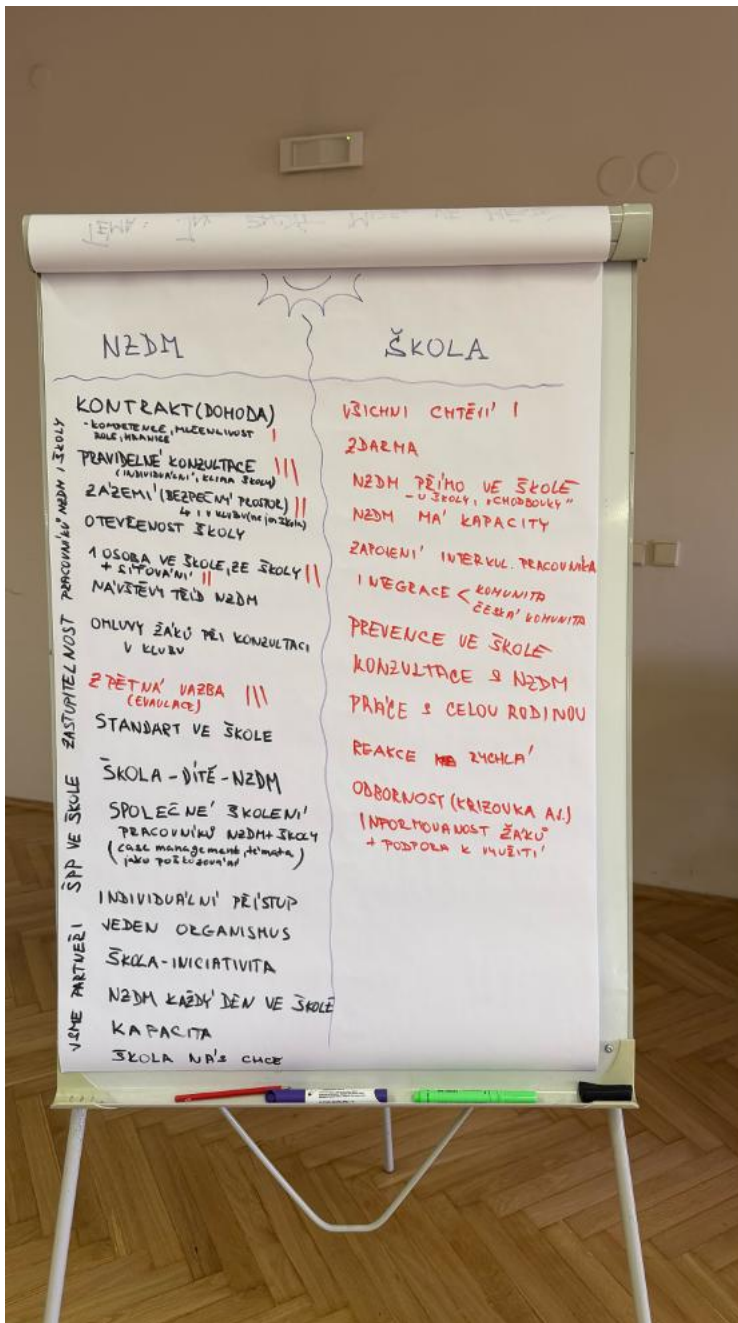 NZDM
KONTRAKT (DOHODA)
- KOMPETENCE, MLČENLIVOST |
ROLE, HRANICE
PRAVIDELNÉ KONZULTACE |||
(INDIVIDUÁLNÍ, KLIMA ŠKOLY)
ZÁZEMÍ (BEZPEČNÝ PROSTOR) ||
i v KLUBU (ne jen škola)
OTEVŘENOST ŠKOLY
1 OSOBA VE ŠKOLE, ZE ŠKOLY ||
+ SÍŤOVÁNÍ ||
NÁVŠTĚVY TŘÍD NZDM
OMLUVY ŽÁKŮ PŘI KONZULTACI
V KLUBU
ZPĚTNÁ VAZBA |||
(EVAULACE)
STANDART VE ŠKOLE
ŠKOLA - DÍTĚ - NZDM
SPOLEČNÉ ŠKOLENÍ
PRACOVNÍKŮ NZDM + ŠKOLY
(case management, témata
jako poškozování)
INDIVIDUÁLNÍ PŘÍSTUP
JEDEN ORGANISMUS
ŠKOLA - INICIATIVITA
NZDM KAŽDÝ DEN VE ŠKOLE
KAPACITA
ŠKOLA NÁS CHCE
JSME PARTNEŘI ŠPP VE ŠKOLE ZASTUPITELNOST PRACOVNÍKŮ NZDM I ŠKOLY
ŠKOLA
VŠICHNI CHTĚJÍ |
ZDARMA
NZDM PŘÍMO VE ŠKOLE
- U ŠKOLY, "CHODBOVKY"
NZDM MÁ KAPACITY
ZAPOJENÍ INTERKUL. PRACOVNÍKA
INTEGRACE < KOMUNITA
ČESKÁ KOMUNITA
PREVENCE VE ŠKOLE
KONZULTACE S NZDM
PRÁCE S CELOU RODINOU
REAKCE RYCHLÁ
ODBORNOST (KRIZOVKA AJ.)
INFORMOVANOST ŽÁKŮ
+ PODPORA K VYUŽITÍ